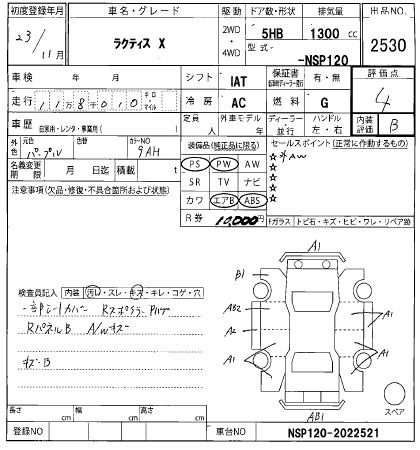 初度登録年月 車名・グレード 駆動 ドア数・形状 排気量 出品NO.
23/11月 ラクティス X 2WD・4WD 5HB 1300 cc 2530
型式 -NSP120
車検 年 月 シフト IAT 保証書 有・無 評価点
走行 118千010 キロ・マイル 冷房 AC 燃料 G 4
車歴 自家用・レンタ・事業用( ) 定員 人 外車モデル 年 ディーラー・並行 ハンドル 左・右 内装評価 B
外色 元色 パープル 色替 カラーNO 9AH 装備品(純正品に限る) セールスポイント(正常に作動するもの)
名義変更期限 月 日迄 積載 t PS PW AW ☆
SR TV ナビ ☆
注意事項(欠品・修復・不具合箇所および状態) カワ エアB ABS ☆
R券 10,000円 Fガラス トビ石・キズ・ヒビ・ワレ・リペア跡
A1
B1
検査員記入 内装 汚れ・スレ・キズ・キレ・コゲ・穴
AB2
A1
A2
RパネルB
A1
A1
キズ・B
AB1
スペア
長さ cm 幅 cm 高さ cm
登録NO 車台NO NSP120-2022521